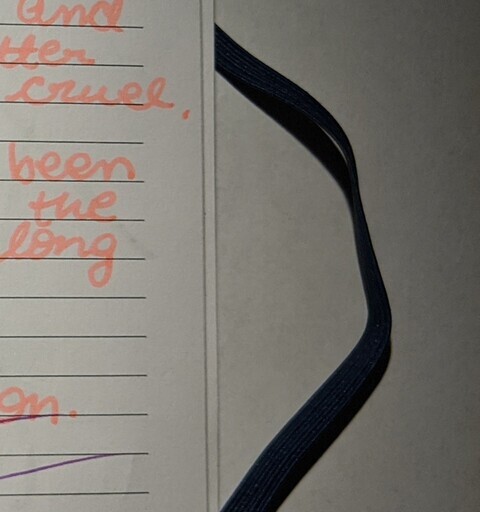 and
tter
cruel.
been
the
long
on.